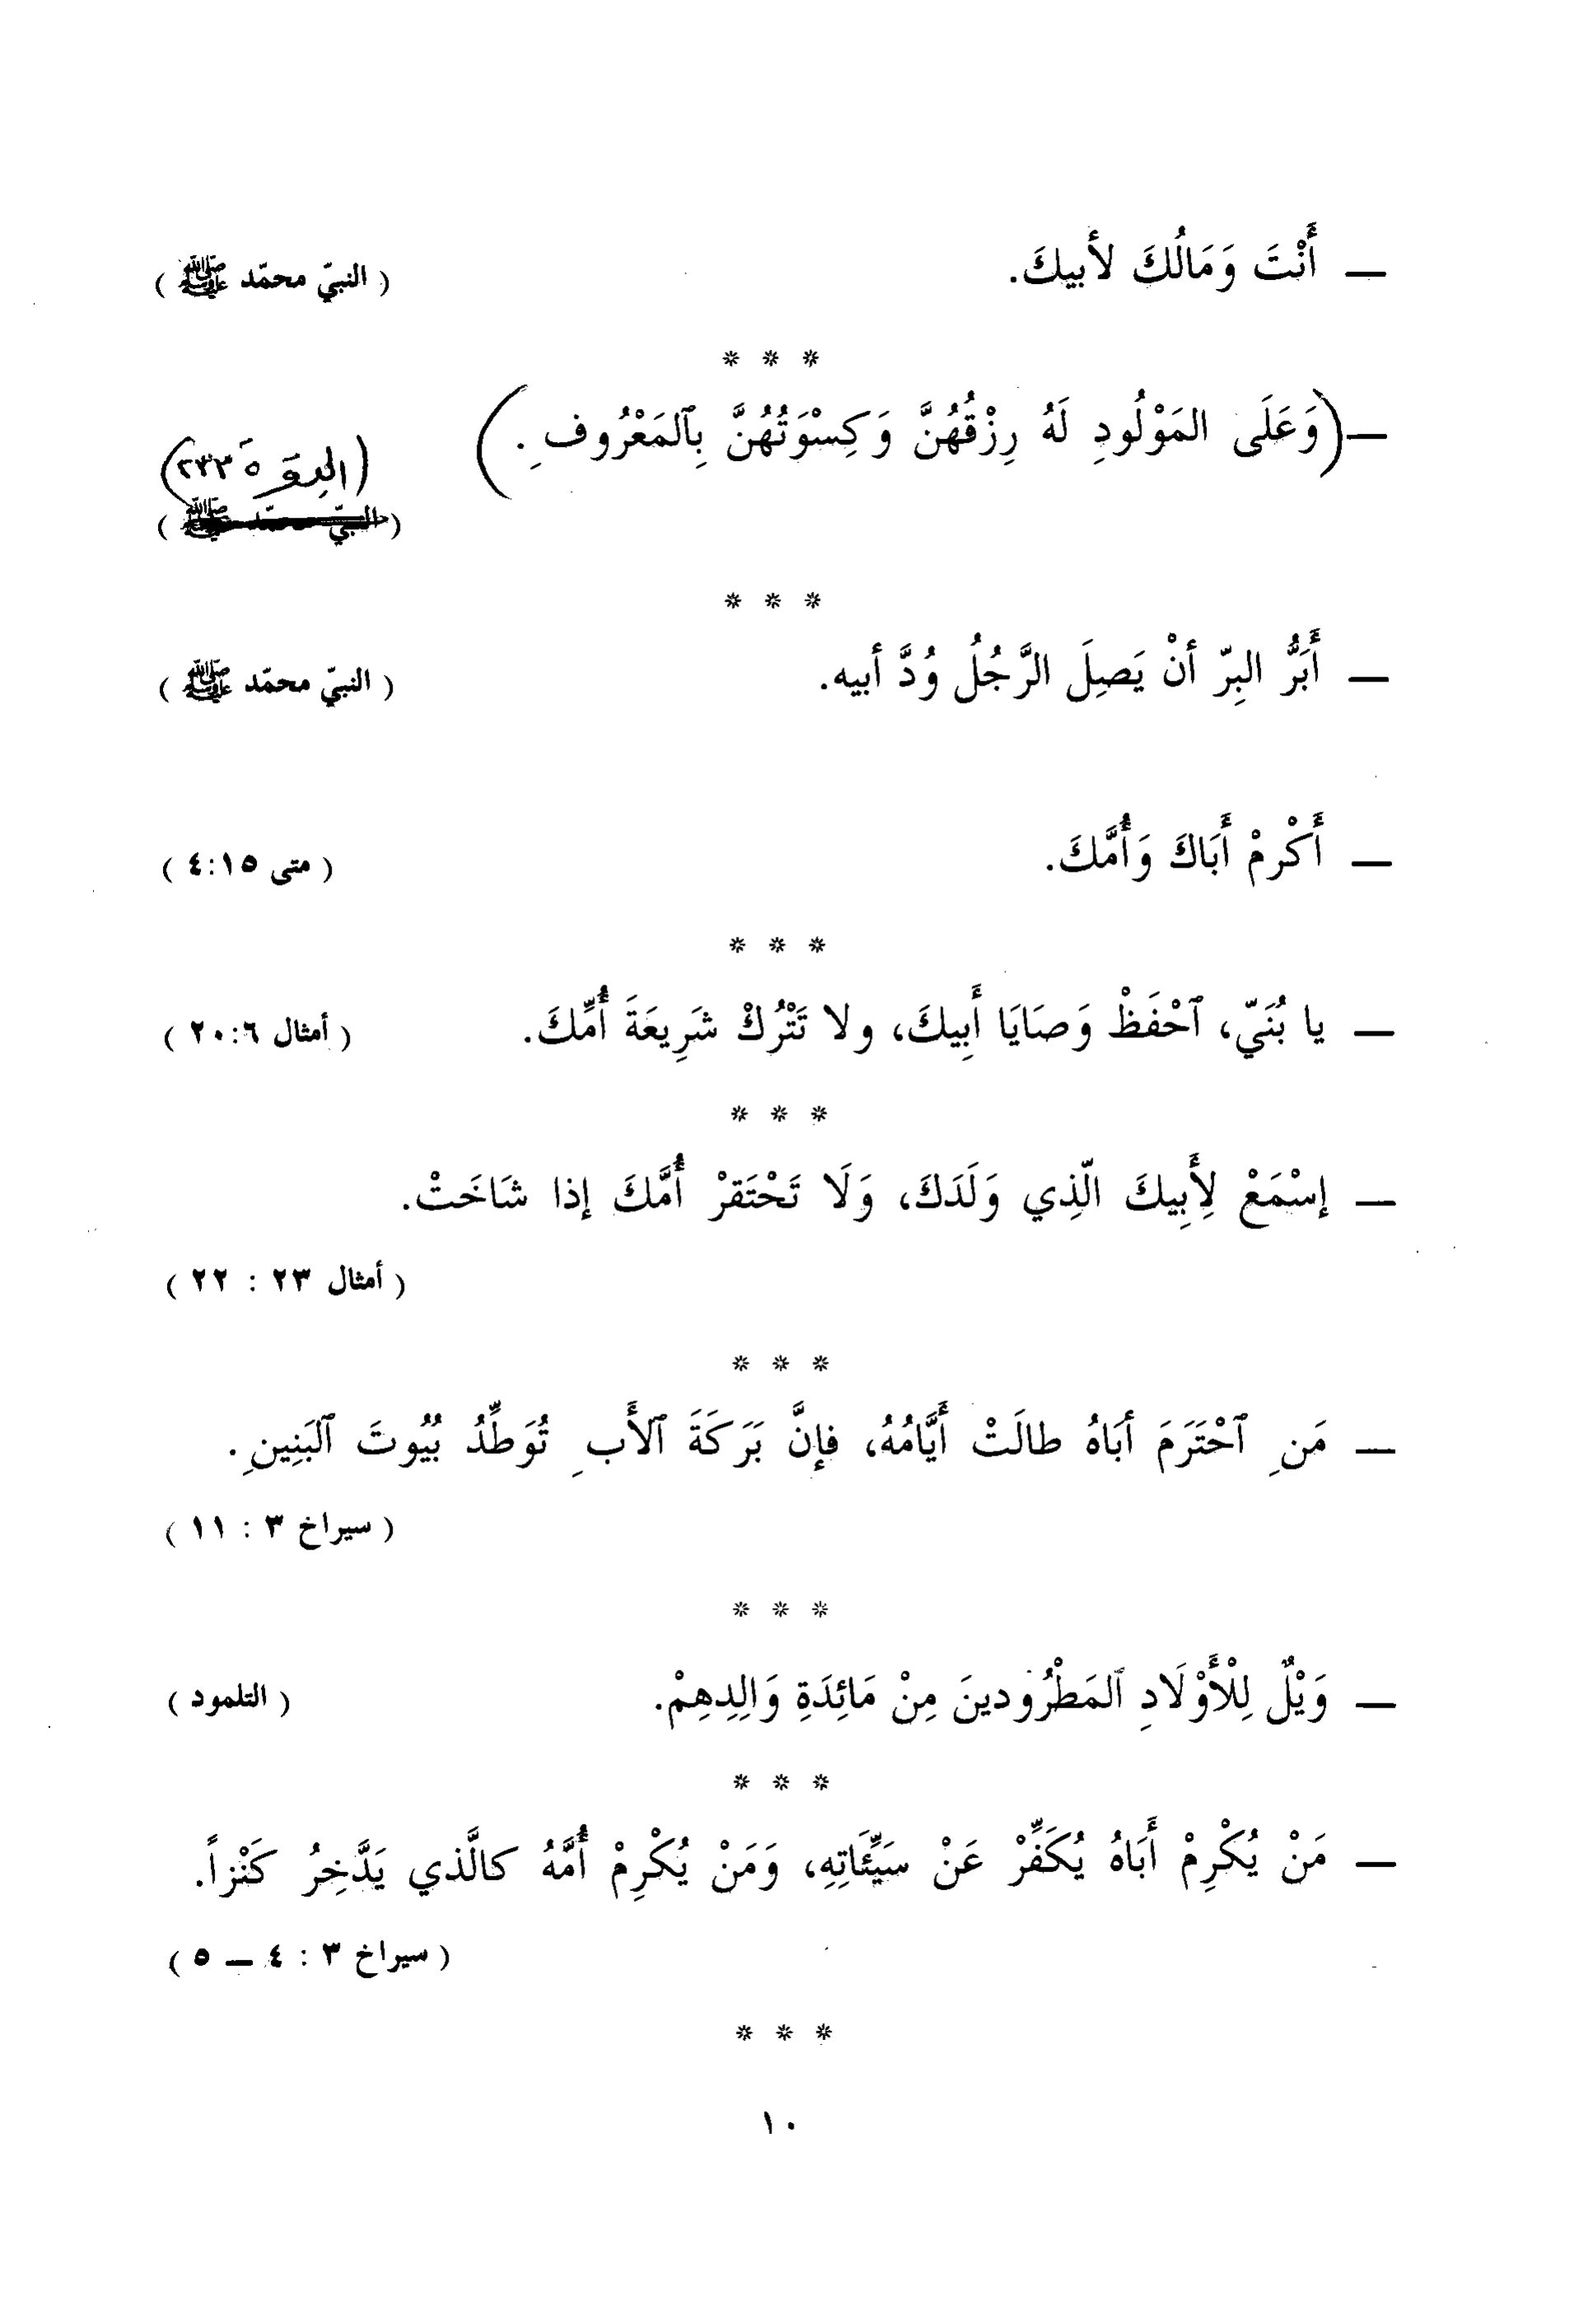 — أَنْتَ وَمَالُكَ لأبيكَ. ( النبيّ محمّد ﷺ )
* * *
— (وَعَلَى المَوْلُودِ لَهُ رِزْقُهُنَّ وَكِسْوَتُهُنَّ بِٱلمَعْرُوفِ.) (البقرة ٢٣٣)
( النبيّ محمّد ﷺ )
* * *
— أَبَرُّ البِرّ أنْ يَصِلَ الرَّجُلُ وُدَّ أبيه. ( النبيّ محمّد ﷺ )
— أَكْرمْ أَبَاكَ وَأُمَّكَ. ( متى ١٥:٤ )
* * *
— يا بُنَيّ، ٱحْفَظْ وَصَايَا أَبِيكَ، ولا تَتْرُكْ شَرِيعَةَ أُمِّكَ. ( أمثال ٦:٢٠ )
* * *
— إسْمَعْ لِأَبِيكَ الّذِي وَلَدَكَ، وَلَا تَحْتَقرْ أُمَّكَ إذا شَاخَتْ.
( أمثال ٢٣ : ٢٢ )
* * *
— مَنِ ٱحْتَرَمَ أبَاهُ طالَتْ أَيَّامُهُ، فإنَّ بَرَكَةَ ٱلأَبِ تُوَطِّدُ بُيُوتَ ٱلبَنِينِ.
( سيراخ ٣ : ١١ )
* * *
— وَيْلٌ لِلْأَوْلَادِ ٱلمَطْرُودينَ مِنْ مَائِدَةِ وَالِدِهِمْ. ( التلمود )
* * *
— مَنْ يُكْرِمْ أَبَاهُ يُكَفِّرْ عَنْ سَيِّئَاتِهِ، وَمَنْ يُكْرِمْ أُمَّهُ كالَّذي يَدَّخِرُ كَنْزاً.
( سيراخ ٣ : ٤ — ٥ )
* * *
١٠